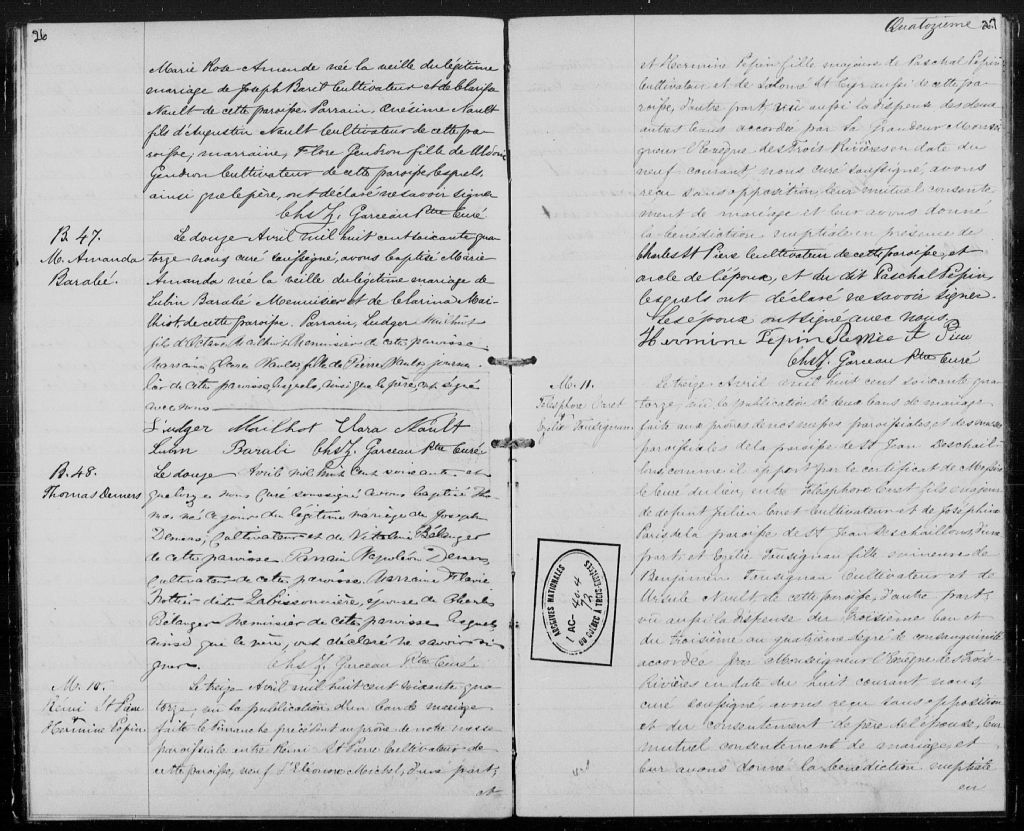 26
Marie Rose-Amende née la veille du légitime
mariage de Joseph Baril Cultivateur et de Clarisse
Nault de cette paroisse. Parrain, Onésime Nault
fils d'Augustin Nault Cultivateur de cette pa-
roisse; marraine, Flore Gendron fille de
Gendron Cultivateur de cette paroisse, lesquels,
ainsi que le père, ont déclaré ne savoir signer
Chs Z. Garceau Ptre Curé
B. 47.
M. Amanda
Barabé.
Le douze Avril mil huit cent soixante qua-
torze nous curé soussigné, avons baptisé Marie
Amanda née la veille du légitime mariage de
Lubin Barabé Menuisier et de Clarina Mai-
lhiot, de cette paroisse. Parrain, Ludger Mailhot
fils d'Octave Mailhot Menuisier de cette paroisse
marraine, Clara Nault, fille de Pierre Nault, journa-
lier de cette paroisse, lesquels, ainsi que le père, ont signé
avec nous
Ludger Mailhot Clara Nault
Lubin Barabi Chs Z. Garceau Ptre Curé
B. 48.
Thomas Demers
Le douze Avril mil huit cent soixante et
quatorze nous Curé soussigné avons baptisé Tho-
mas né ce jour du légitime mariage de Joseph
Demers, Cultivateur et de Vitaline Bélanger
de cette paroisse. Parrain Napoléon Demers
Cultivateur de cette paroisse, Marraine Flavie
Rottier dite Labissonnière, épouse de Charles
Bélanger Menuisier de cette paroisse lesquels,
ainsi que le père, ont déclaré ne savoir si-
gner.
Chs Z. Garceau Ptre Curé
M. 10.
Rémi St Pierre
Hermine Pepin
Le treize Avril mil huit cent soixante qua-
torze, vu la publication d'un ban de mariage
faite le Dimanche précédent au prône de notre messe
paroissiale entre Rémi St Pierre Cultivateur de
cette paroisse, veuf d'Eléonore Michel, d'une part;
et
Quatozieme 27
et Hermine Pepin fille majeure de Paschal Pepin
Cultivateur et de St Cyr aussi de cette pa-
roisse, d'autre part, vu aussi la dispense des deux
autres bans accordée par Sa Grandeur Monsei-
gneur l'Evêque des Trois Rivières en date du
neuf courant nous curé soussigné, avons
reçu sans opposition leur mutuel consente-
ment de mariage et leur avons donné
la bénédiction nuptiale en présence de
Charles St Pierre Cultivateur de cette paroisse, et
oncle de l'époux, et du dit Paschal Pepin,
lesquels ont déclaré ne savoir signer.
Les époux ont signé avec nous
Hermine Pepin Remie St Pierr
Chs Z. Garceau Ptre Curé
M. 11.
Télesphore Ouret
et
Exélie Tousignan
Le treize Avril mil huit cent soixante qua-
torze, vu la publication de deux bans de mariage
faite aux prônes de nos messes paroissiales et des messes
paroissiales de la paroisse de St Jean Deschail-
lons comme il appert par le certificat de Messire
le Curé du lieu, entre Télesphore Ouret fils majeur
de defunt Julien Ouret Cultivateur et de Joséphine
Paris de la paroisse de St Jean Deschaillons, d'une
part et Exélie Tousignan fille mineure de
Benjamin Tousignan Cultivateur et de
Ursule Nault de cette paroisse, d'autre part;
vu aussi la dispense du troisième ban et
du troisième au quatrième degré de consanguinité
accordée par Monseigneur l'Evêque des Trois-
Rivières en date du huit courant nous
curé soussigné, avons reçu sans opposition
et du consentement de père de l'épouse, leur
mutuel consentement de mariage, et
leur avons donné la bénédiction nuptiale
en
ARCHIVES NATIONALES
DU QUÉBEC À TROIS-RIVIÈRES